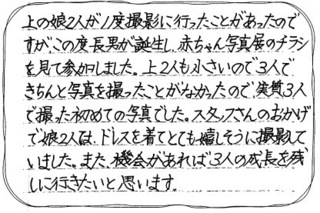 上の娘2人が1度撮影に行ったことがあったので
すが、この度長男が誕生し、赤ちゃん写真展のチラシ
を見て参加しました。上2人も小さいので3人で
きちんと写真を撮ったことがなかったので、実質3人
で撮った初めての写真でした。スタッフさんのおかげ
で娘2人は、ドレスを着てとても嬉しそうに撮影して
いました。また、機会があれば3人の成長を残
しに行きたいと思います。